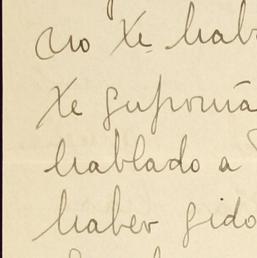 no te hab
te suponía
hablado a
haber sido